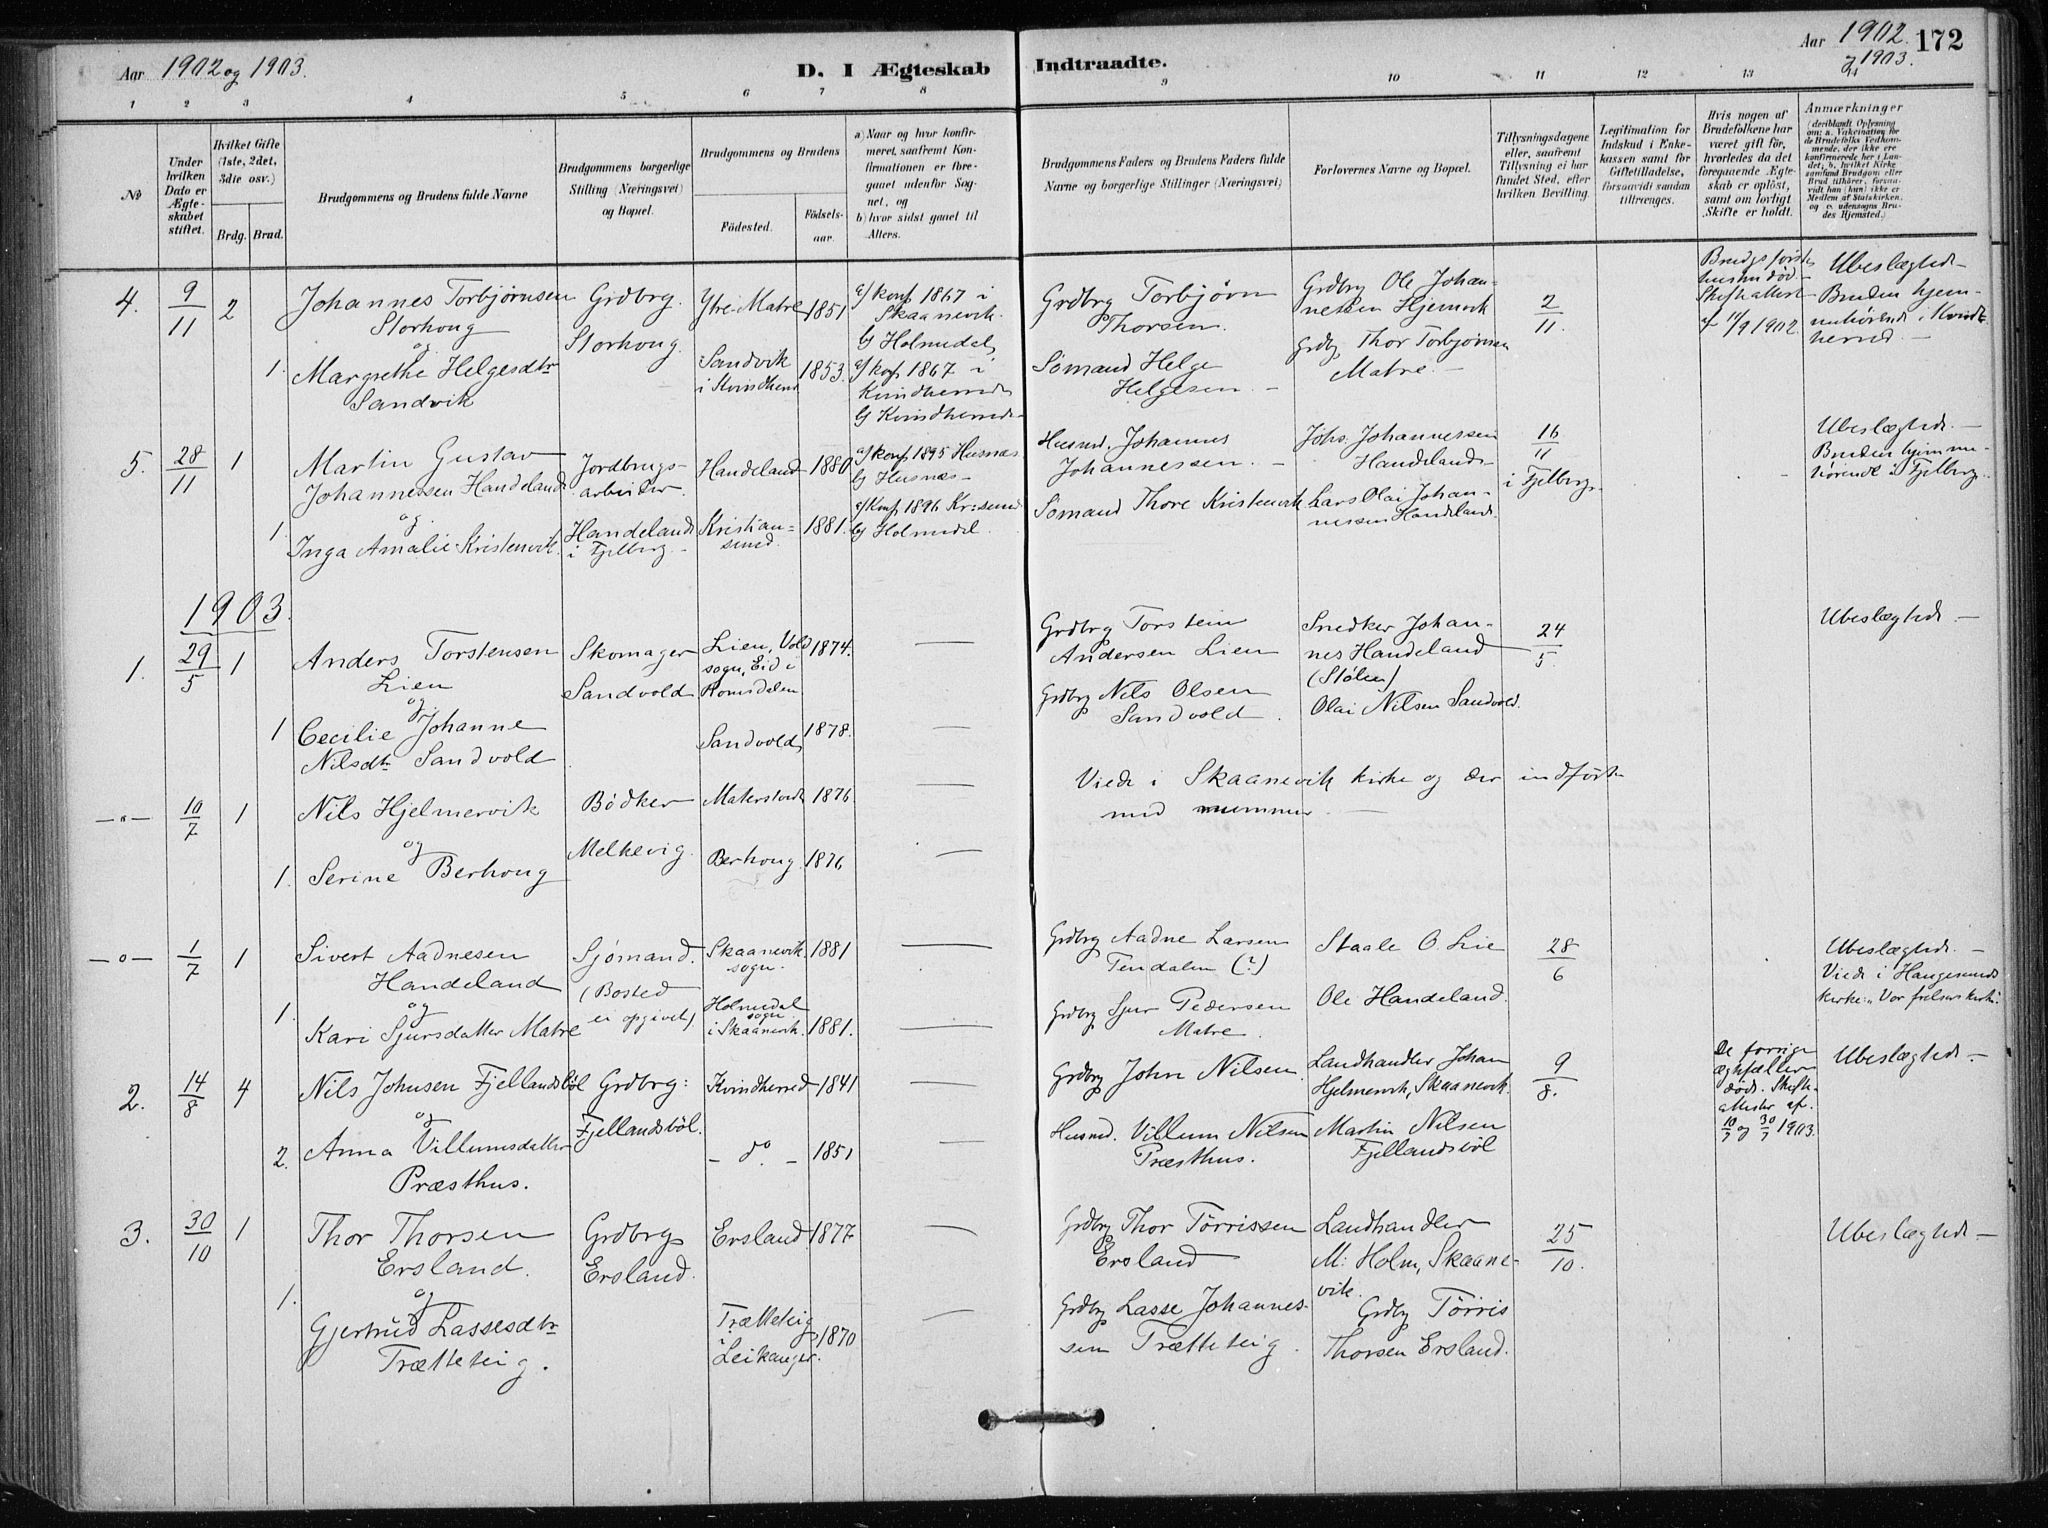 Aar 1902 og 1903.
D. I Ægteskab Indtraadte.
Aar 1902. og 1903.
172
1 2 3 4 5 6 7 8 9 10 11 12 13 14
No
Under hvilken Dato er Ægteskabet stiftet.
Hvilket Gifte (1ste, 2det, 3die osv.)
Brdg. Brud.
Brudgommens og Brudens fulde Navne
Brudgommens borgerlige Stilling (Næringsvei) og Bopæl.
Brudgommens og Brudens
Födested. Födselsaar.
a) Naar og hvor konfirmeret, saafremt Konfirmationen er foregaaet udenfor Sognet, og
b) hvor sidst gaaet til Alters.
Brudgommens Faders og Brudens Faders fulde Navne og borgerlige Stillinger (Næringsvei)
Forlovernes Navne og Bopæl.
Tillysningsdagene eller, saafremt Tillysning ei har fundet Sted, efter hvilken Bevilling.
Legitimation for Indskud i Enkekassen samt for Giftetilladelse, forsaavidt saadan tiltrænges.
Hvis nogen af Brudefolkene har været gift før, hvorledes da det foregaaende Ægteskab er oplöst, samt om lovligt Skifte er holdt.
Anmærkninger
(deriblandt Oplysning om: a. Vakcination for de Brudefolks Vedkommende, der ikke ere konfirmerede her i Landet; b. hvilket Kirkesamfund Brudgom eller Brud tilhører, forsaavidt han (hun) ikke er Medlem af Statskirken, og c. udensogns Brudes Hjemsted.)
4. 9/11 2
Johannes Torbjørnsen
Storhoug
og
1. Margrethe Helgesdtr
Sandvik
Grdbrg.
Storhoug.
Ytre-Matre 1851
Sandvik
i Kvindherd 1853.
a/ konf 1867 i
Skaanevik.
b/ Holmedal
a/ konf 1867 i
Kvindherred
b/ Kvindherred
Grdbrg Torbjørn
Thorsen.
Sømand Helge
Helgesen. –
Grdbrg Ole Johannessen Hjelmevik
Grdbrg Thor Torbjørnsen
Matre. –
2/11.
Brudgs første
hustru død.
Skifteattest
af 11/9 1902.
Ubeslægtede
Bruden hjemmehörende i Kvindherred. –
5. 28/11 1
Martin Gustav
Johannessen Handeland
og
1. Inga Amalie Kristensvik
Jordbrugsarbeider.
Handeland
i Fjelberg
Handeland 1880.
Kristiansund. 1881.
a/ konf 1895 Husnæs.
b/ Husnæs –
a/ Konf 1896 Kr:sund
b/ Holmedal.
Husmd. Johannes
Johannessen. –
Sømand Thore Kristensvik
Johs. Johannessen
Handeland
Lars Olai Johannessen Handeland.
16/11
i Fjelberg.
Ubeslægtede. –
Bruden hjemmehörende i Fjelberg.
1903.
1. 29/5 1
Anders Torstensen
Lien
og
1 Cecilie Johanne
Nilsdtr Sandvold
Skomager
Sandvold
Lien, Vold
sogn, Eid i
Romsdalen 1874.
Sandvold 1878.
Grdbrg Torstein
Andersen Lien
Grdbrg Nils Olsen
Sandvold.
Snedker Johannes Handeland
(Stölen)
Olai Nilsen Sandvold.
24/5.
Ubeslægtede. –
–"– 10/7 1
Nils Hjelmervik
og
1. Serine Berhoug
Bödker
Melkevig.
Matersstord 1876
Berhoug. 1876
Viede i Skaanevik kirke og der indført
med nummer. –
–o– 1/7 1
Sivert Aadnesen
Handeland
og
1. Kari Sjursdatter Matre
Sjømand.
(Bosted
ei opgivet)
Skaanevik
sogn. 1881
Holmedal
sogn
i Skaanevk. 1881.
Grdbrg Aadne Larsen
Tendalen (?)
Grdbrg Sjur Pedersen
Matre.
Staale O Lie
Ole Handeland.
28/6
Ubeslægtede. –
Viede i Haugesunds
kirke: "Vor frelsers kirke".
2. 14/8 4
Nils Johnsen Fjellandsböl
og
2. Anna Villumsdatter
Præsthus.
Grdbrg:
Fjellandsböl.
Kvindherred 1841
– do. – 1851
Grdbrg John Nilsen.
Husmd. Villum Nilsen
Præsthus.
Landhandler Johan
Hjelmevik, Skaanevik.
Martin Nilsen
Fjellandsböl
9/8.
De forrige
ægtefæller
døde. Skifteattester af.
10/7 og 30/7 1903.
Ubeslægtede –
3. 30/10 1
Thor Thorsen
Ersland.
og
1. Gjertrud Lassesdtr
Trætteteig.
Grdbrg
Ersland.
Ersland. 1877
Trætteteig
i
Leikanger. 1870
Grdbrg Thor Tørrissen
Ersland
Grdbrg Lasse Johannessen Trætteteig.
Landhandler
M: Holm, Skaanevik.
Grdbrg Tørris
Thorsen Ersland.
25/10.
Ubeslægtede –